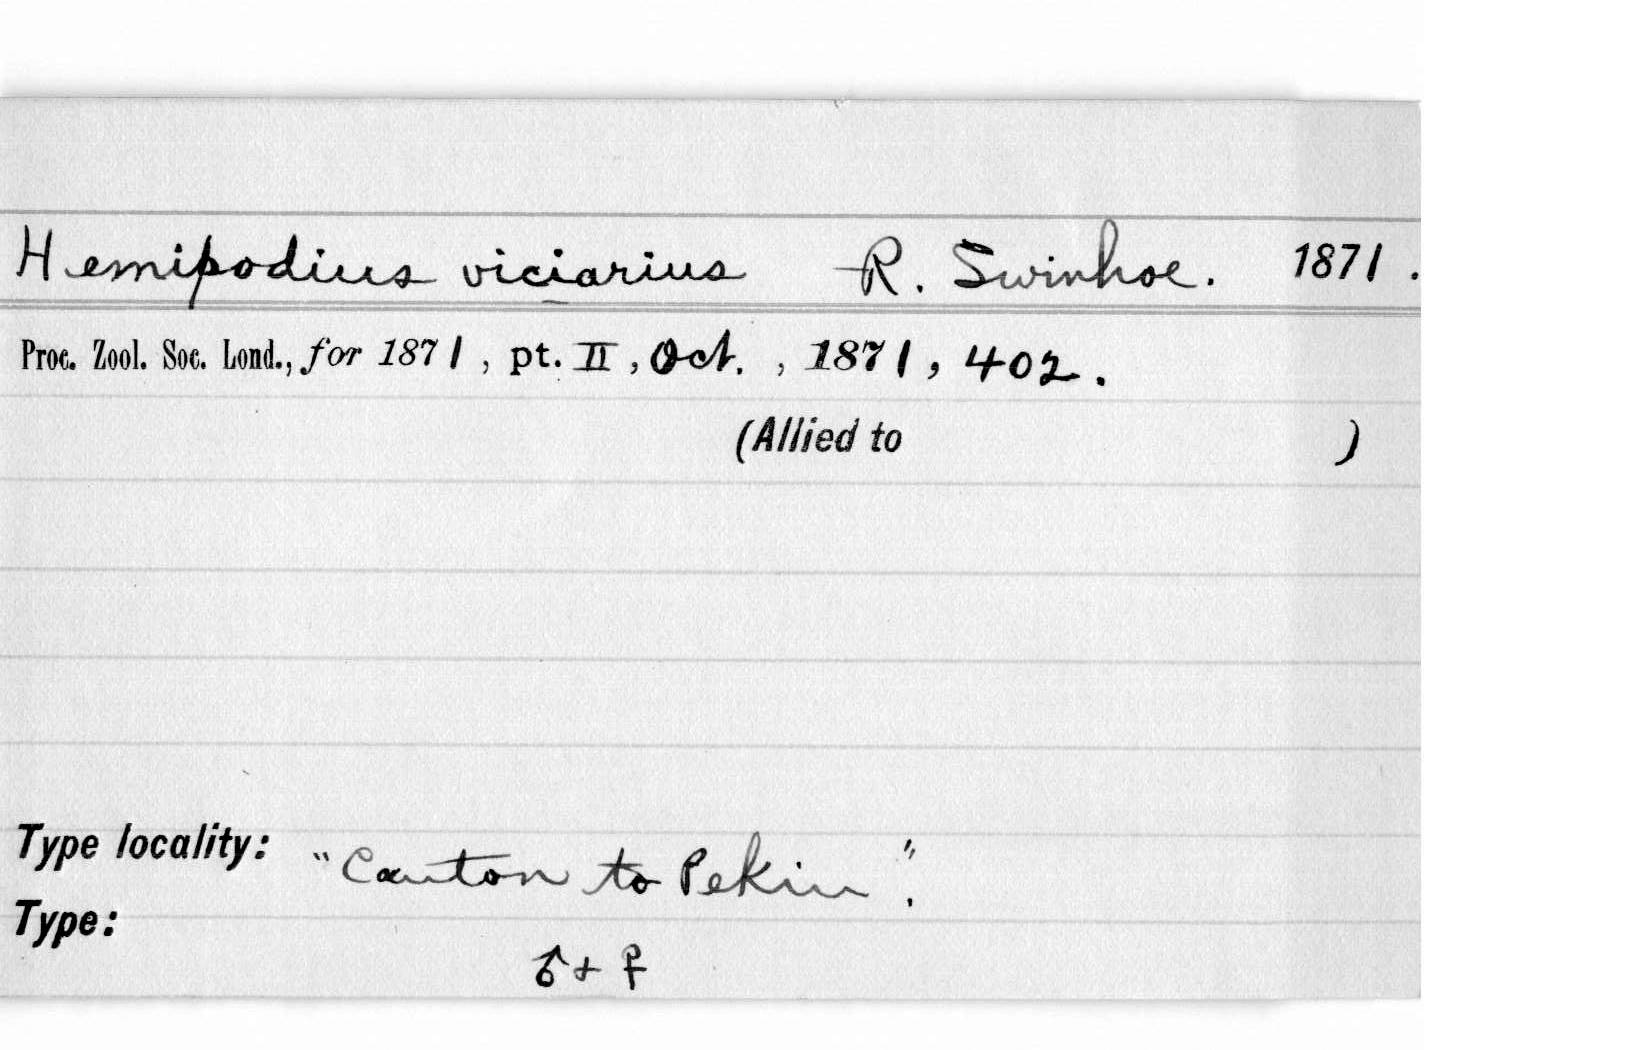 Hemipodius viciarius R. Swinhoe. 1871.
Proc. Zool. Soc. Lond., for 1871, pt. II, Oct., 1871, 402.
(Allied to )
Type locality: "Canton to Pekin".
Type:
♂ + ♀